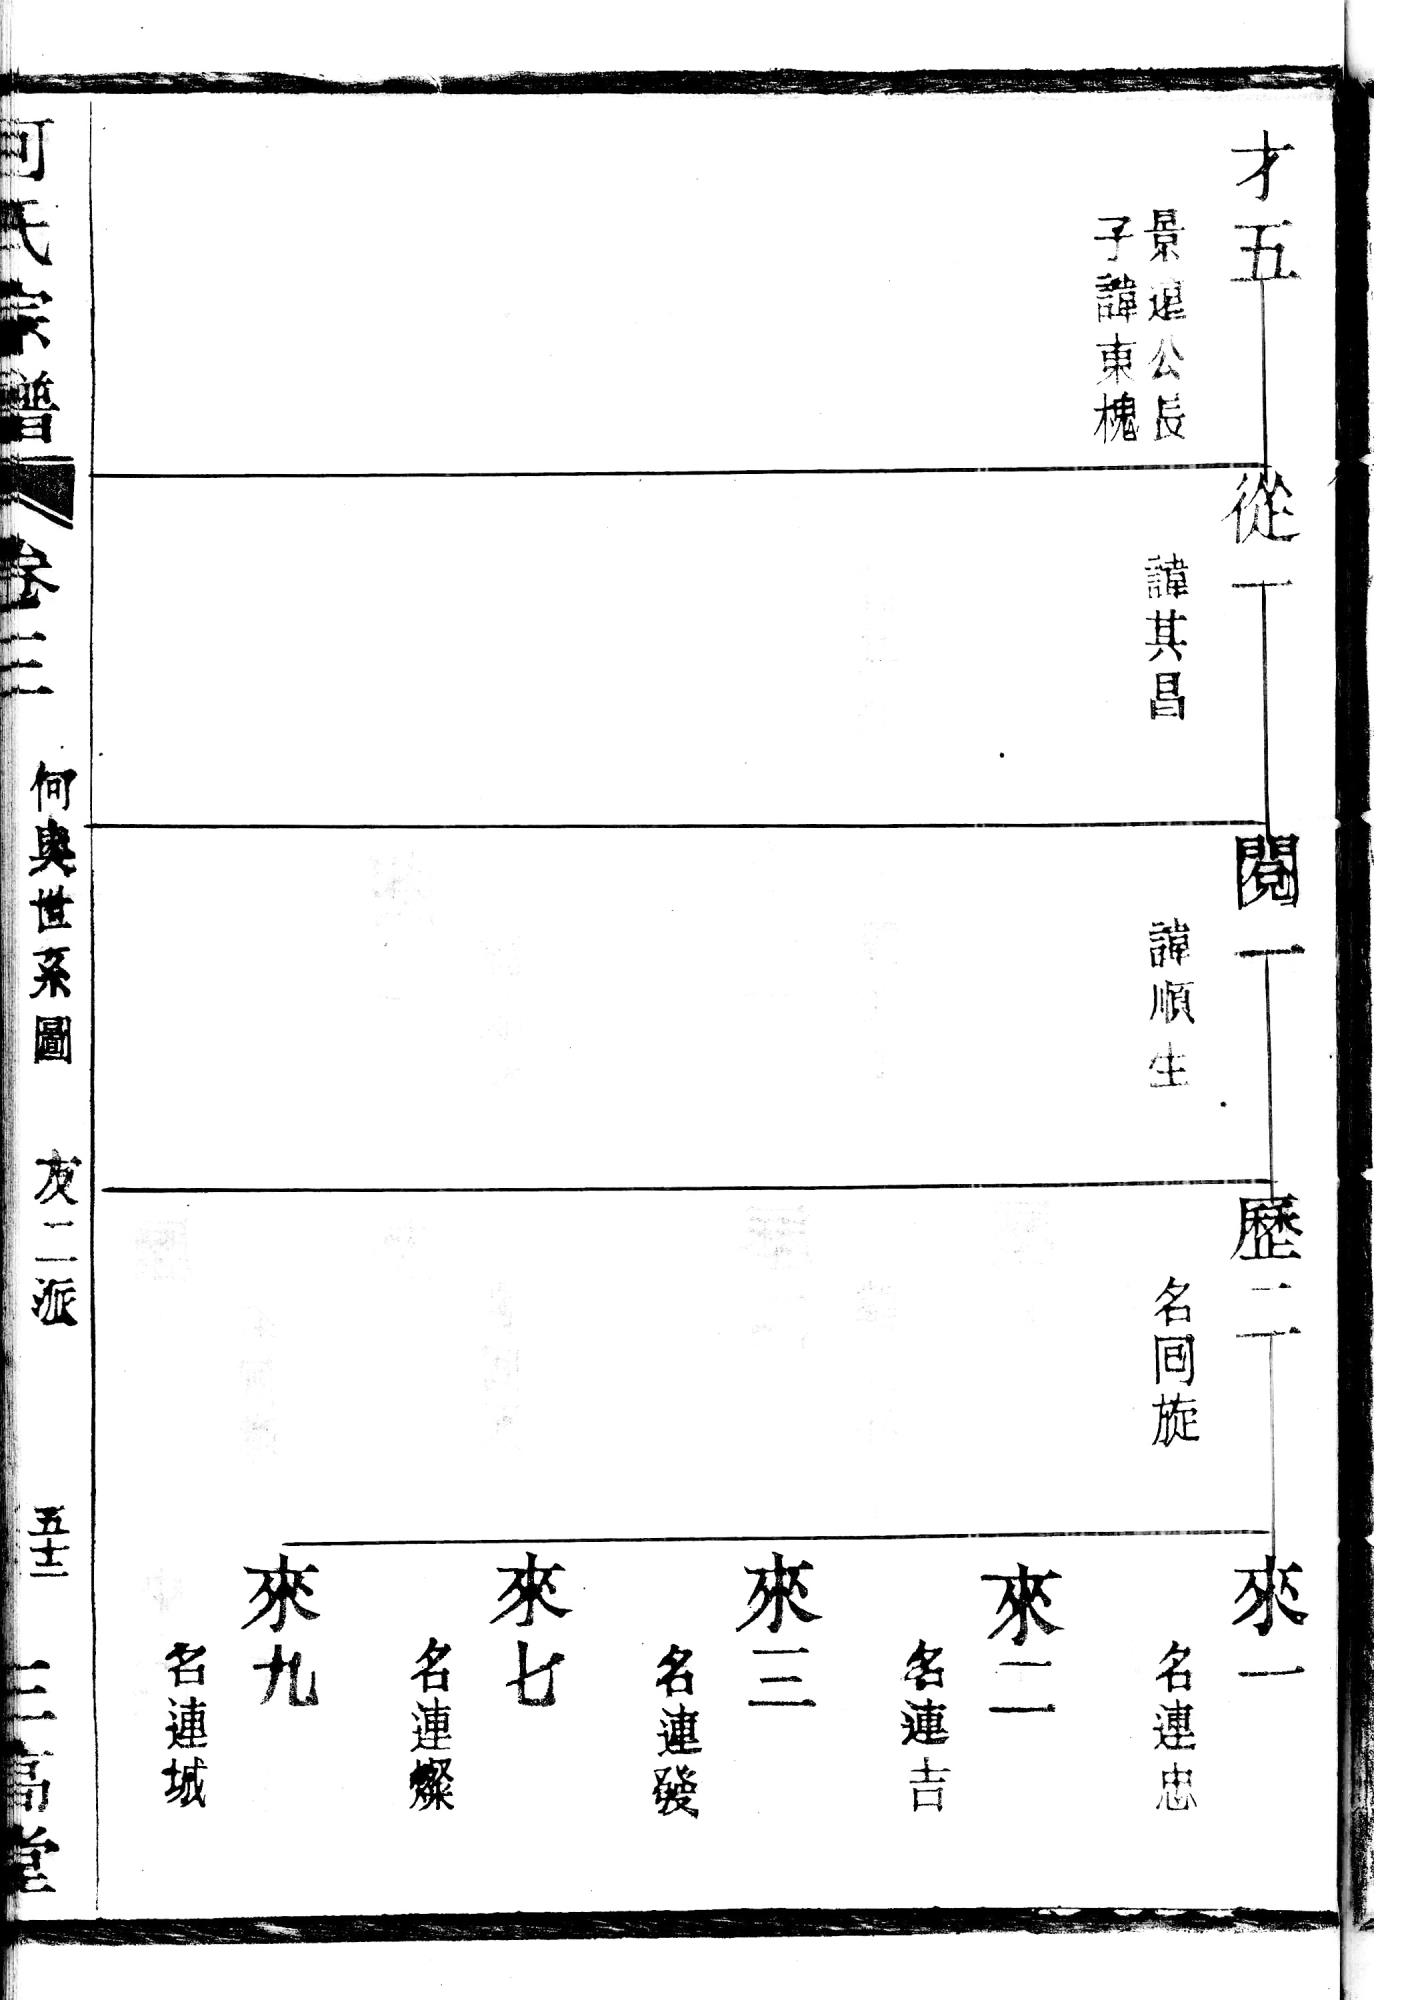 才五
景連公長
子諱東槐
從一
諱其昌
閱一
諱順生
歷二
名同旋
來一
名連忠
來二
名連吉
來三
名連發
來七
名連燦
來九
名連城
何氏宗譜
卷三
何輿世系圖
友二派
五十二
三高堂